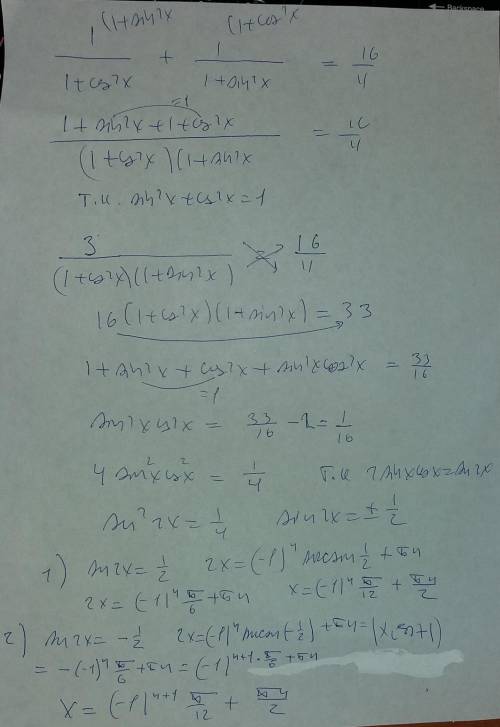 (1+sin²x (1+cos²x
1/(1+cos²x) + 1/(1+sin²x) = 16/11
=1
(1+sin²x+1+cos²x)/((1+cos²x)(1+sin²x) = 16/11
т.к. sin²x+cos²x=1
3/((1+cos²x)(1+sin²x)) = 16/11
16(1+cos²x)(1+sin²x) = 33
1+sin²x+cos²x+sin²xcos²x = 33/16
=1
sin²xcos²x = 33/16 - 2 = 1/16
4 sin²xcos²x = 1/4 т.к 2sinxcosx=sin2x
sin²2x = 1/4 sin2x = ± 1/2
1) sin2x = 1/2 2x = (-1)ⁿ arcsin 1/2 + πn
2x = (-1)ⁿ π/6 + πn x = (-1)ⁿ π/12 + πn/2
2) sin2x = -1/2 2x = (-1)ⁿ arcsin(-1/2) + πn =
= -(-1)ⁿ π/6 + πn = (-1)ⁿ⁺¹ · π/6 + πn
x = (-1)ⁿ⁺¹ π/12 + πn/2